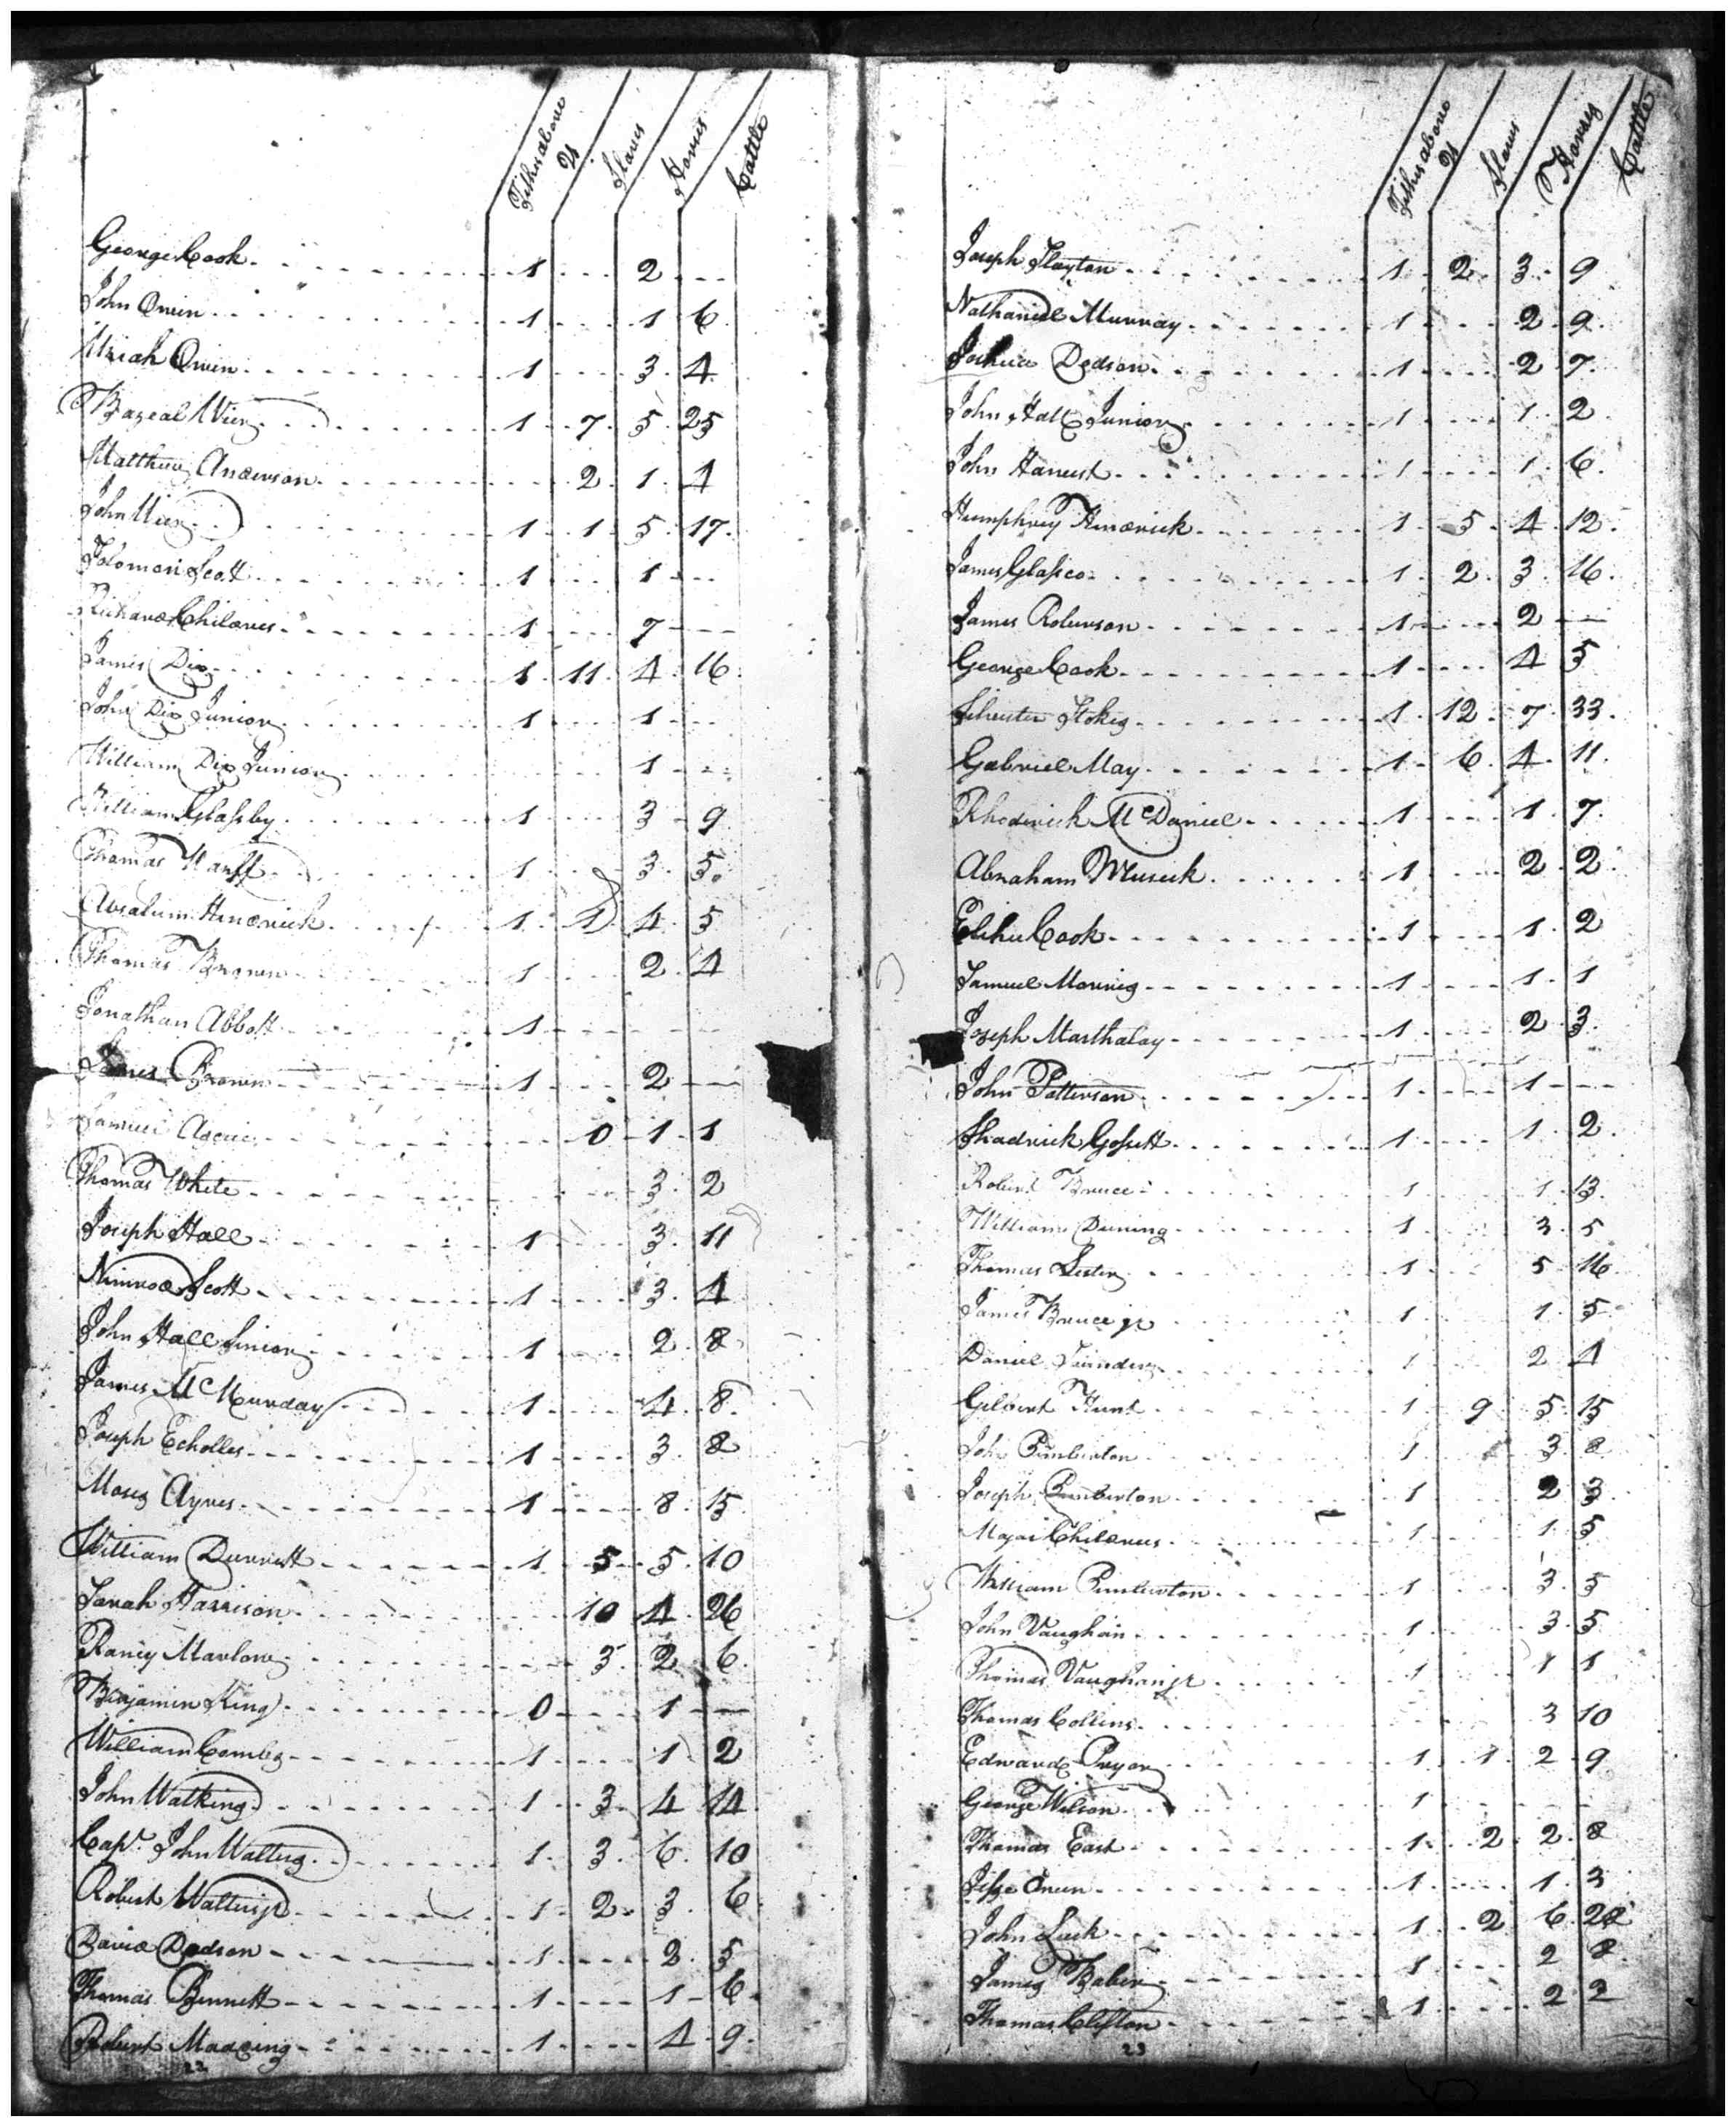 Tithes above 21 Slaves Horses Cattle
George Cook 1 2
John Owen 1 1 6
Uriah Owen 1 3 4
Bazeal Wier 1 7 5 25
Matthew Anderson 2 1 4
John Wier 1 1 5 17
Solomon Scott 1 1
Richard Childres 1 7
James Dix 1 11 4 16
John Dix Junior 1 1
William Dix Junior 1
William Glassby 1 3 9
Thomas 1 3 5
Absalum Hendrick 1 1 4 5
Thomas Brown 1 2 4
Jonathan Abbott 1
James Brown 1 2
Samuel 0 1 1
Thomas White 3 2
Joseph Hall 1 3 11
Nimrod Scott 1 3 4
John Hall Sinior 1 2 8
James McMunday 1 4 8
Joseph Echolles 1 3 8
Moses Ayres 1 8 15
William Durrett 1 5 5 10
Sarah Harrison 10 4 26
Raney Marlow 3 2 6
Benjamin King 0 1
William Combs 1 1 2
John Watking 1 3 4 14
Capt. John Watters 1 3 6 10
Robert Watters jr 1 2 3 6
David Dodson 1 2 5
Thomas Bennett 1 1 6
Robert Madding 1 4 9
22
Tithes above 21 Slaves Horses Cattle
Joseph Slayton 1 2 3 9
Nathaniel Murray 1 2 9
Joshua Dodson 1 2 7
John Hall Junior 1 1 2
John Harvest 1 1 6
Humphrey Hendrick 1 5 4 12
James Glassco 1 2 3 16
James Roberson 1 2
George Cook 1 4 5
Silvester Stokes 1 12 7 33
Gabriel May 1 6 4 11
Rhoderick McDaniel 1 1 7
Abraham Musick 1 2 2
Elihu Cook 1 1 2
Samuel Morning 1 1 1
Joseph Marthalay 1 2 3
John Patterson 1 1
Shadrick Gossett 1 1 2
Robert Bruce 1 1 13
William Duning 1 3 5
Thomas Lester 1 5 16
James Bruce jr 1 1 5
Daniel Saunders 1 2 4
Gilbert Hunt 1 9 5 15
John Pemberton 1 3 8
Joseph Pemberton 1 2 3
Childress 1 1 5
William Pemberton 1 3 5
John Vaughan 1 3 5
Thomas Vaughan jr 1 1 1
Thomas Collins 3 10
Edward Pryor 1 1 2 9
George Wilson 1
Thomas East 1 2 2 8
Jesse Owen 1 1 3
John Luck 1 2 6 22
James Baber 1 2 8
Thomas Clifton 1 2 2
23